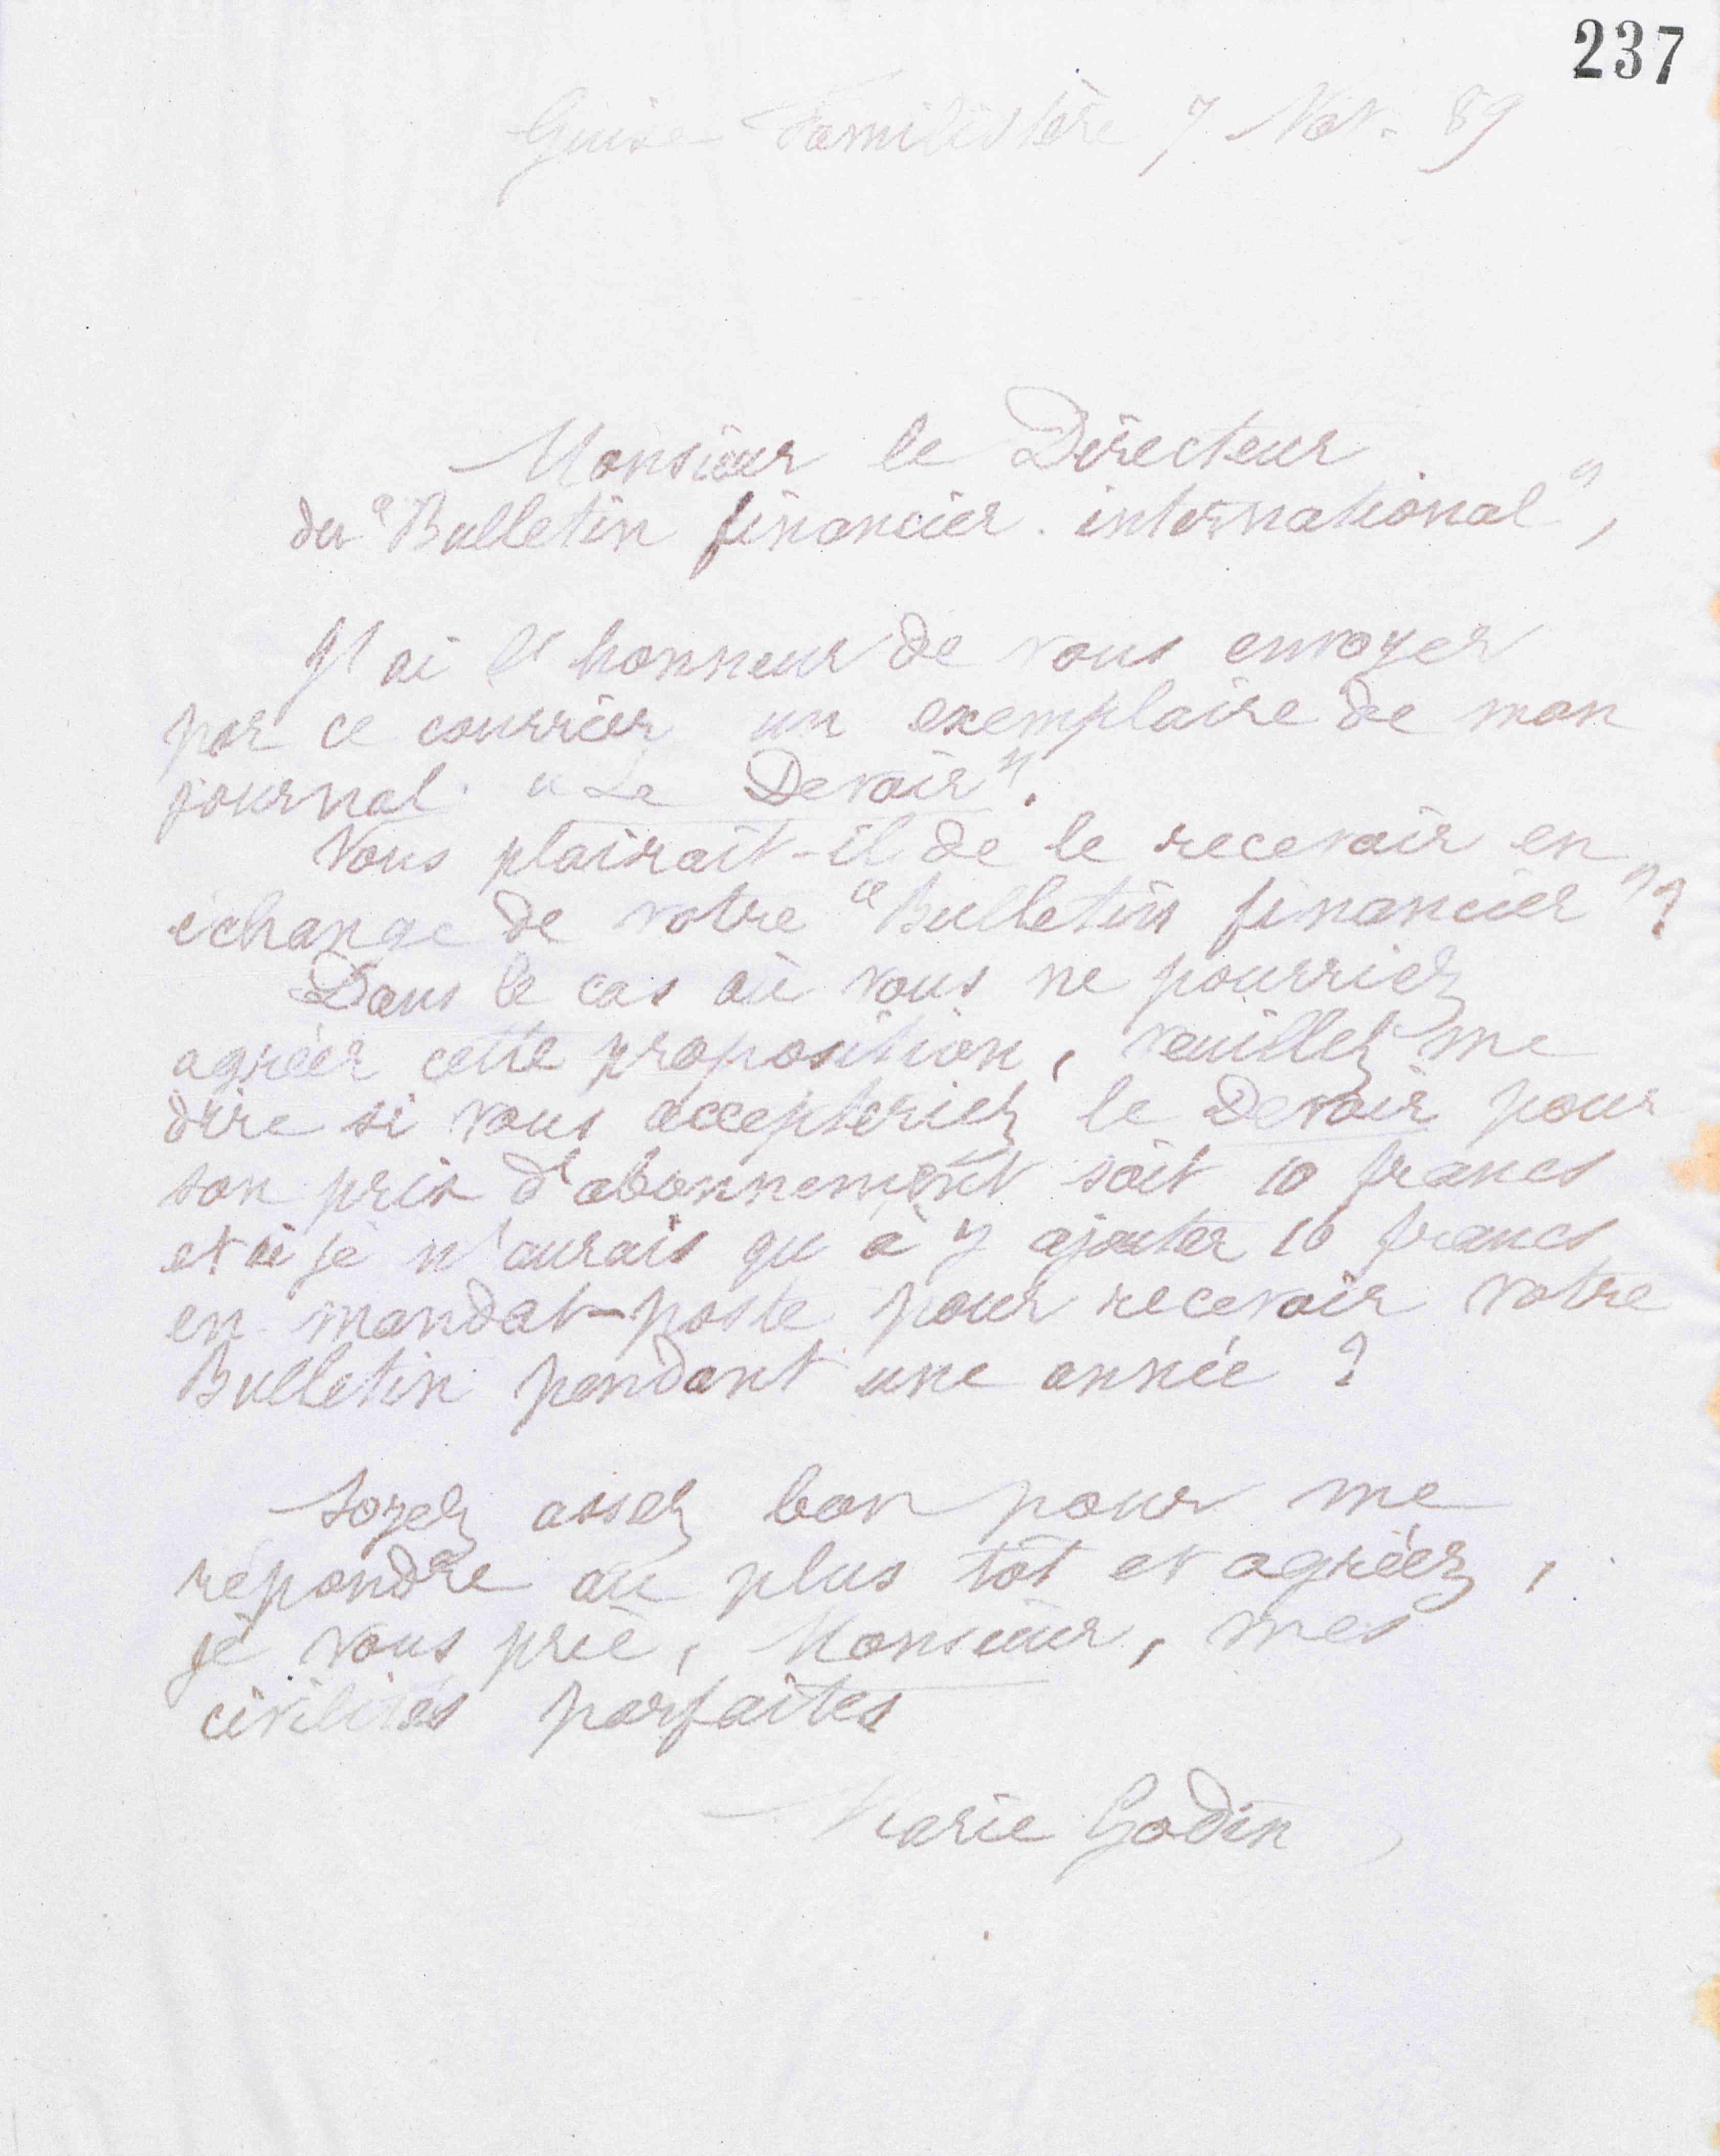 237
Guise Familistère 7 Nov. 89
Monsieur le Directeur
du "Bulletin financier international",
J'ai l'honneur de vous envoyer
par ce courrier un exemplaire de mon
journal "Le Devoir".
Vous plairait-il de le recevoir en
échange de votre "Bulletin financier"?
Dans le cas où vous ne pourriez
agréer cette proposition, veuillez me
dire si vous accepteriez le Devoir pour
son prix d'abonnement soit 10 francs
et si je n'aurais qu'à y ajouter 10 francs
en mandat-poste pour recevoir votre
Bulletin pendant une année ?
Soyez assez bon pour me
répondre au plus tôt et agréez,
je vous prie, Monsieur, mes
civilités parfaites
Marie Godin